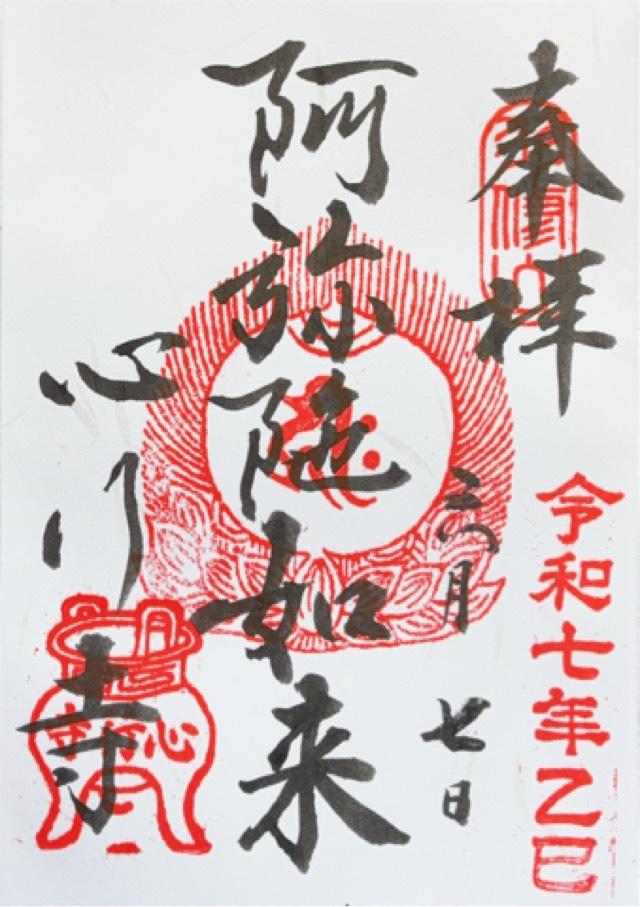 奉拝
令和七年乙巳
三月七日
阿弥陀如来
心行寺
心行寺